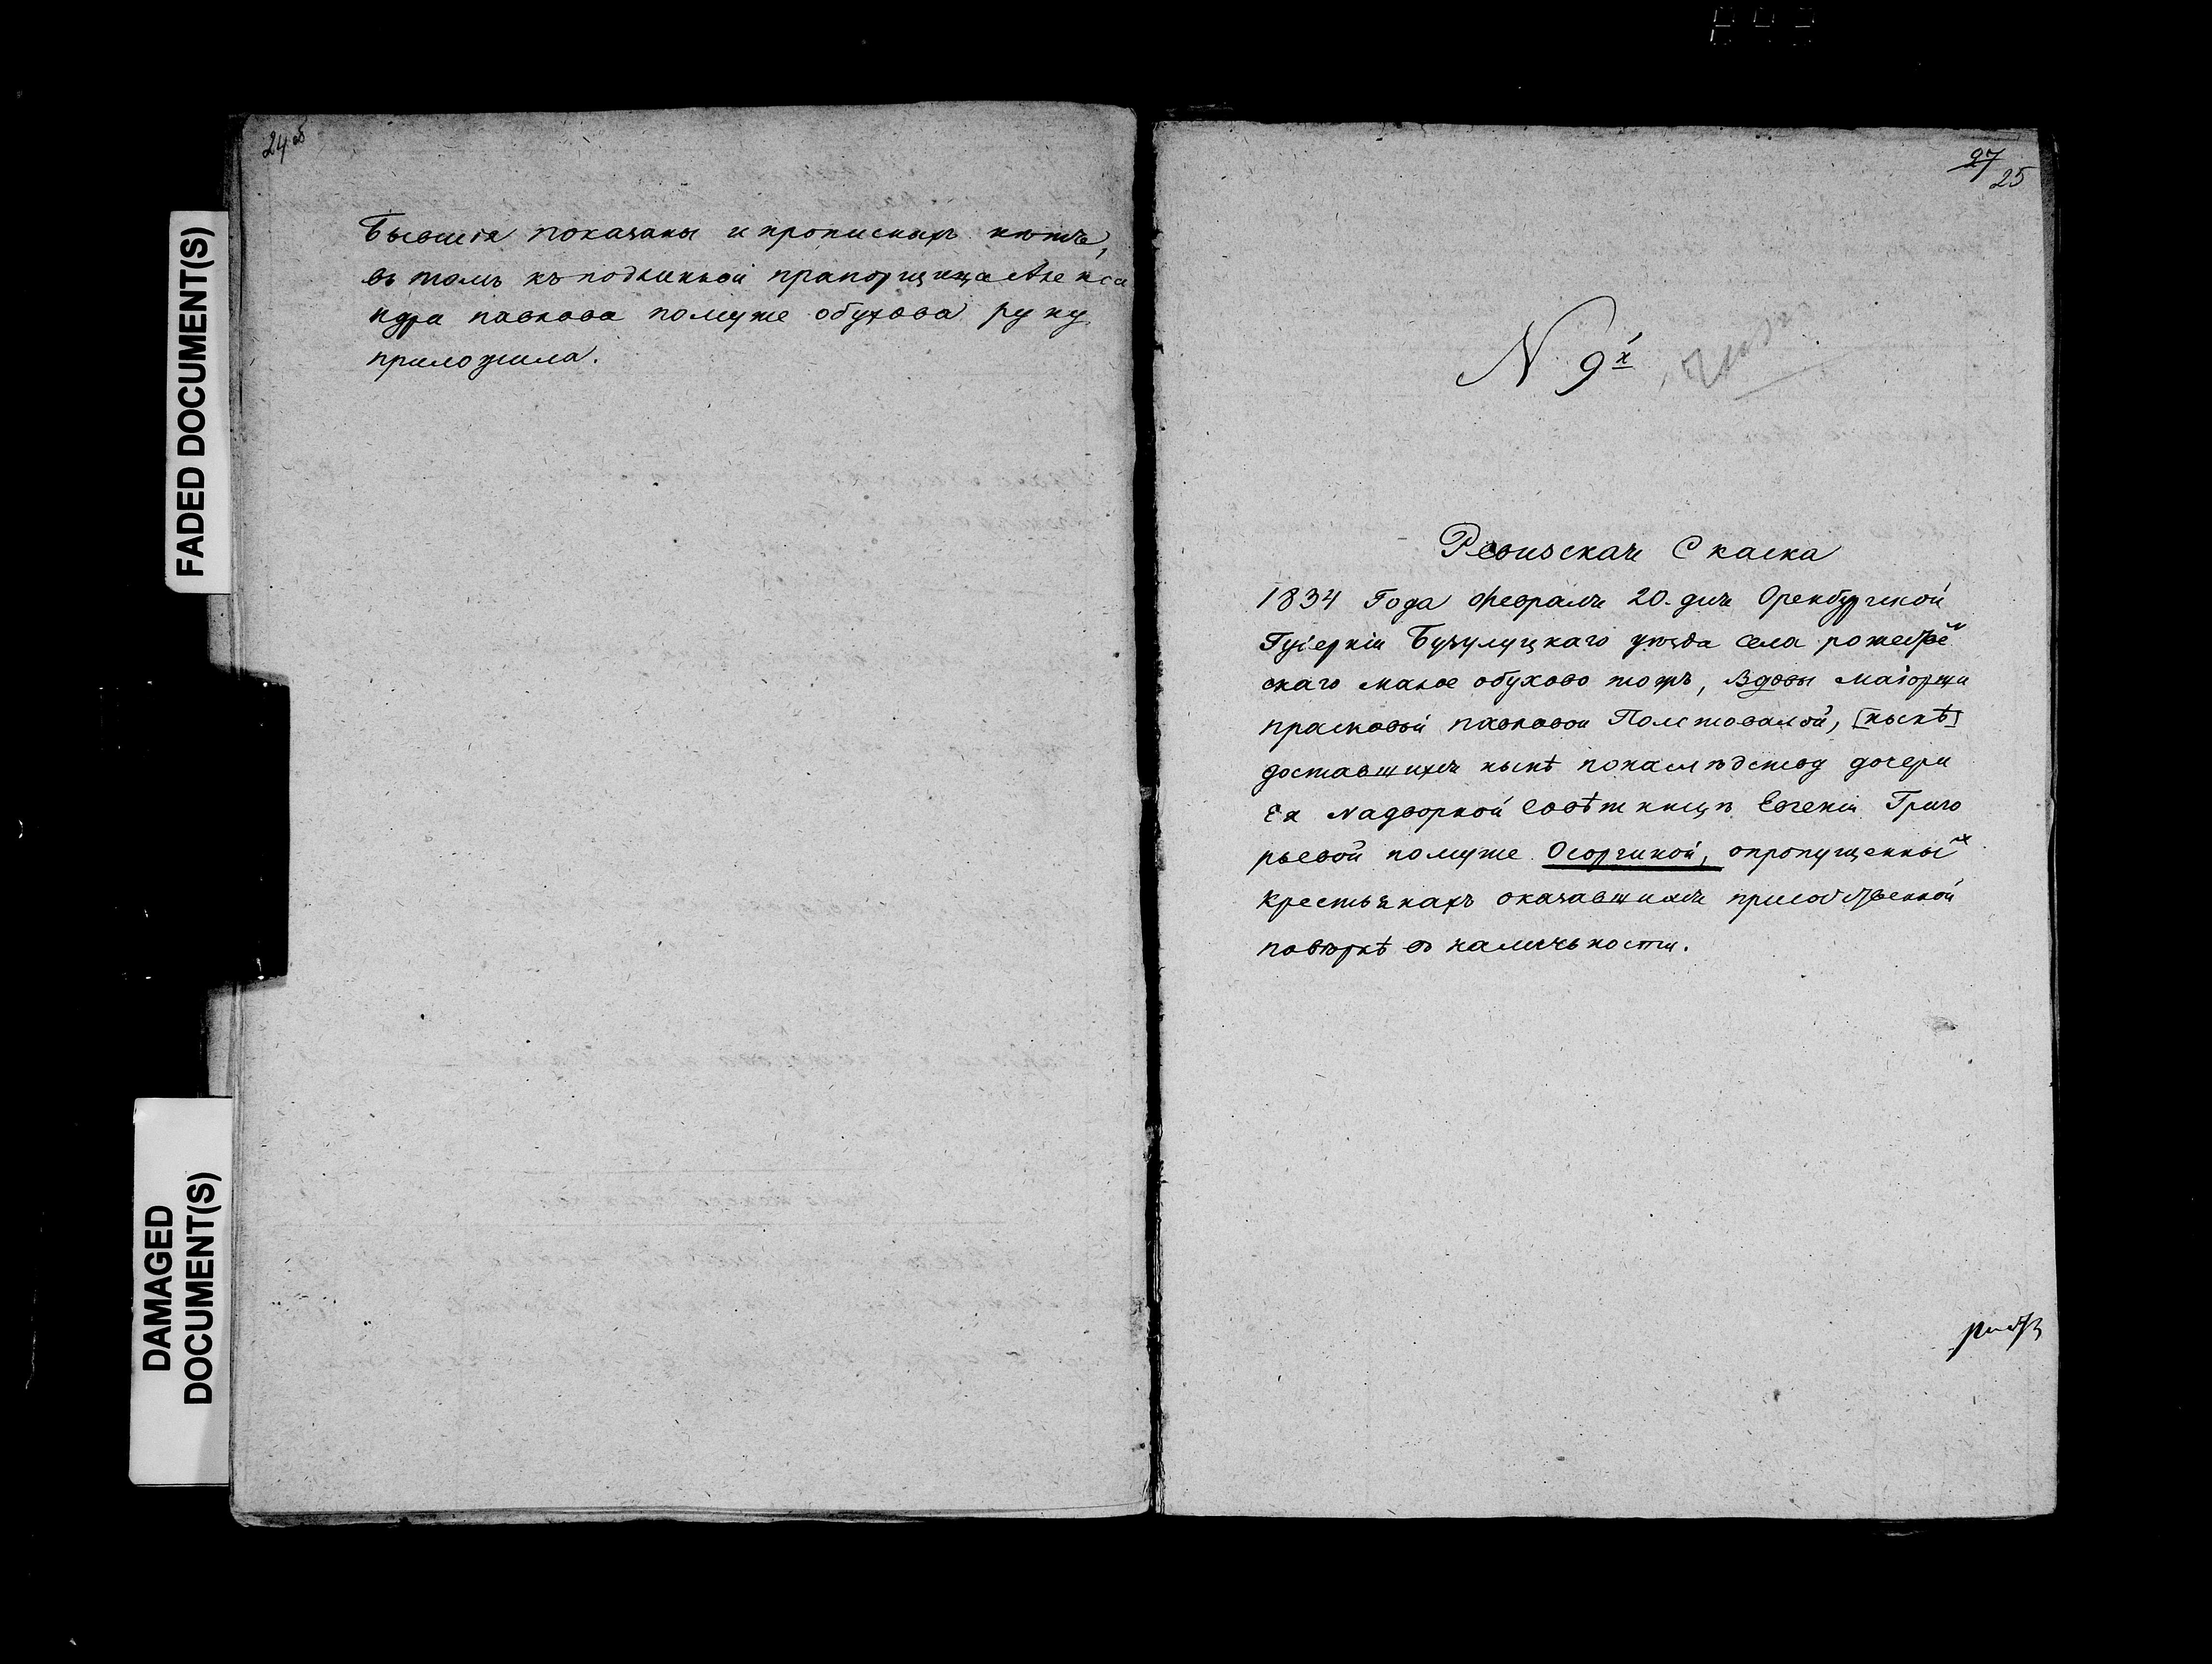 24 об
Бывшія показаны и прописныхъ нѣтъ,
въ томъ къ подлинной прапорщица Алекса
ндра павлова помуже обухова руку
приложила.
FADED DOCUMENT(S)
DAMAGED
DOCUMENT(S)
27
25
N 9й
Ревизская Сказка
1834 Года февраля 20. дня Оренбургской
Губерніи Бузулуцкаго уѣзда села рожествен
скаго малое обухово тожъ, Вдовы маіорши
прасковьи павловой Полстоваловой, [нынѣ]
доставшихся нынѣ понаслѣдству дочери
Ея Надворной Совѣтницѣ Евгеніи Григо
рьевой помуже Осоргиной, опропущенных
крестьянахъ оказавшихся присобственной
повѣркѣ въ наличьности.